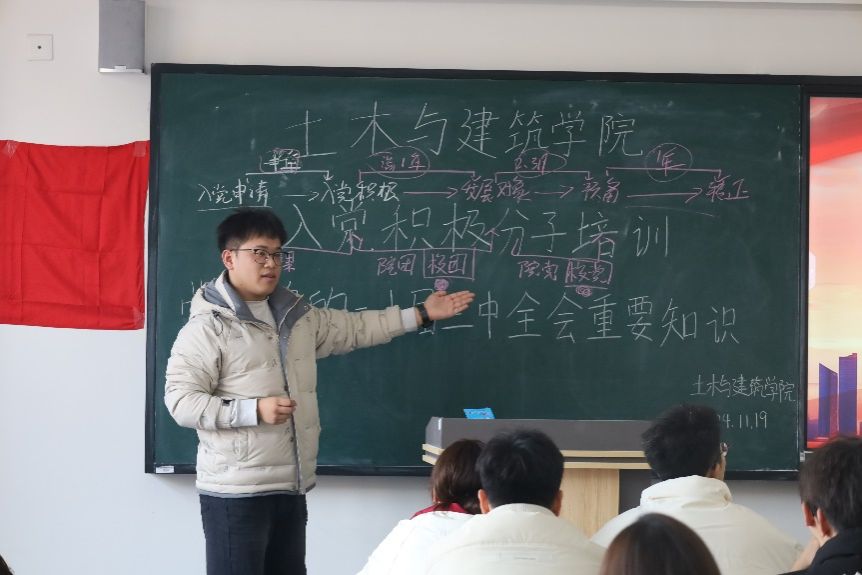 土木与建筑学院
半年 满1年 2-3月 1年
入党申请 → 入党积极 → 发展对象 → 预备 → 转正
入党积极分子培训
院团 校团 院党 校党
二中全会重要知识
土木与建筑学院
4.11.19